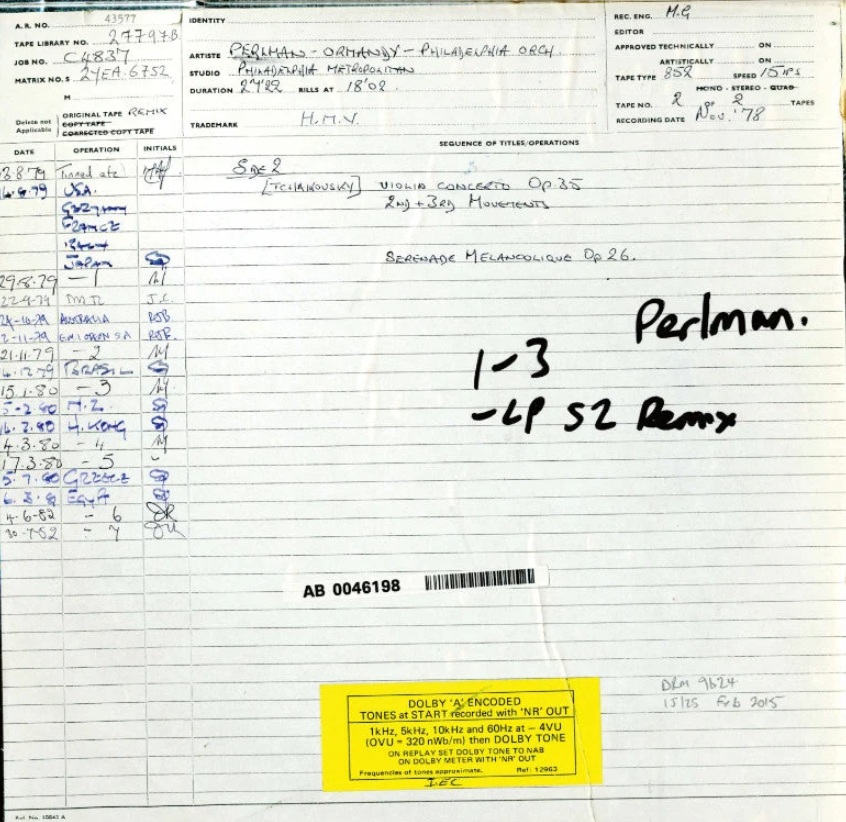 A.R. NO. 43577
TAPE LIBRARY NO. 27797B
JOB NO. C4837
MATRIX NO.S 2YEA.6752
M
Delete not Applicable
ORIGINAL TAPE REMIX
COPY TAPE
CORRECTED COPY TAPE
IDENTITY
ARTISTE PERLMAN - ORMANDY - PHILADELPHIA ORCH.
STUDIO PHILADELPHIA METROPOLITAN
DURATION BILLS AT 18'02
TRADEMARK H.M.V.
REC. ENG. M.G
EDITOR
APPROVED TECHNICALLY ON
ARTISTICALLY ON
TAPE TYPE 852 SPEED 15 IPS
MONO - STEREO - QUAD
TAPE NO. 2 OF 2 TAPES
RECORDING DATE Nov. '78
DATE OPERATION INITIALS SEQUENCE OF TITLES/OPERATIONS
SIDE 2
[TCHAIKOVSKY] VIOLIN CONCERTO Op.35
2ND + 3RD MOVEMENTS
SERENADE MELANCOLIQUE Op 26.
USA.
GERMANY
FRANCE
JAPAN
29.8.79 - 1
22-9-79 J.L.
24-10-79 AUSTRALIA RJB
2-11-79 RJB.
21.11.79 - 2
BRASIL
15.1.80 - 3
N.Z.
H. KONG
4.3.80 - 4
17.3.80 - 5
GREECE
Egypt
4-6-82 - 6 DR
30-7-82 - 7 DR
Perlman.
1-3
- LP S2 Remix
AB 0046198
DRM 9624
15/25 Feb 2015
DOLBY 'A' ENCODED
TONES at START recorded with 'NR' OUT
1kHz, 5kHz, 10kHz and 60Hz at - 4VU
(OVU = 320 nWb/m) then DOLBY TONE
ON REPLAY SET DOLBY TONE TO NAB
ON DOLBY METER WITH 'NR' OUT
Frequencies of tones approximate. Ref: 12963
IEC